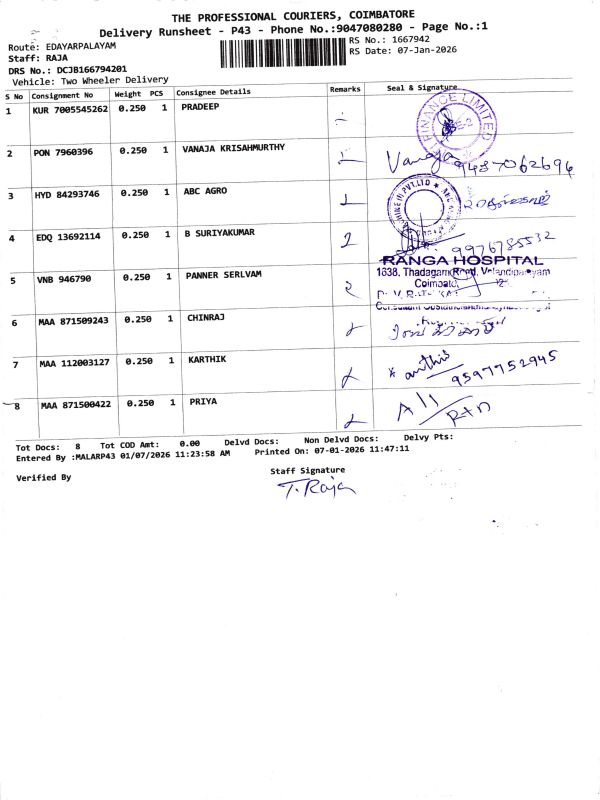 THE PROFESSIONAL COURIERS, COIMBATORE
Delivery Runsheet - P43 - Phone No.:9047080280 - Page No.:1
Route: EDAYARPALAYAM
RS No.: 1667942
Staff: RAJA
RS Date: 07-Jan-2026
DRS No.: DCJB166794201
Vehicle: Two Wheeler Delivery
S No Consignment No Weight PCS Consignee Details Remarks Seal & Signature
1 KUR 7005545262 0.250 1 PRADEEP
FINANCE LIMITED
2 PON 7960396 0.250 1 VANAJA KRISAHMURTHY Vanaja 9487062694
3 HYD 84293746 0.250 1 ABC AGRO
4 EDQ 13692114 0.250 1 B SURIYAKUMAR 9976785532
RANGA HOSPITAL
1638, Thadagam Road, Velandipalayam
5 VNB 946790 0.250 1 PANNER SERLVAM
6 MAA 871509243 0.250 1 CHINRAJ
7 MAA 112003127 0.250 1 KARTHIK 9597752945
8 MAA 871500422 0.250 1 PRIYA All RTN
Tot Docs: 8 Tot COD Amt: 0.00 Delvd Docs: Non Delvd Docs: Delvy Pts:
Entered By :MALARP43 01/07/2026 11:23:58 AM Printed On: 07-01-2026 11:47:11
Verified By
Staff Signature
T. Raja